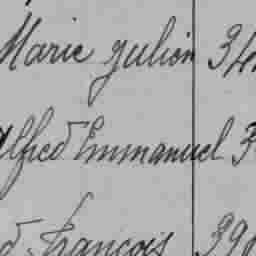 Marie Julien 34
Alfred Emmanuel 3
d François 39